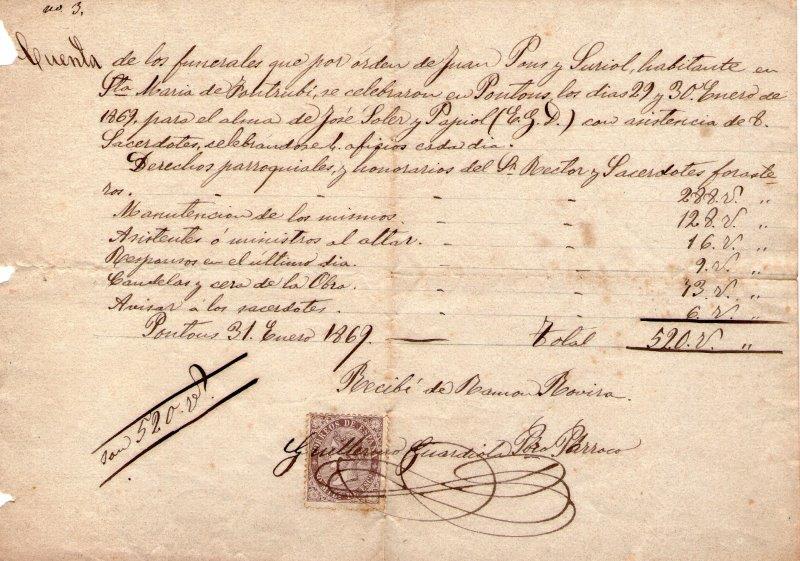 no. 3.
Cuenta de los funerales que por órden de Juan Pons y Suriol, habitante en
Sta. María de Fontrubí, se celebraron en Pontons, los dias 29 y 30 Enero de
1869, para el alma de José Soler y Pujiol (E.G.D.) con asistencia de 8.
Sacerdotes, celebrándose 6. oficios cada dia.
Derechos parroquiales, y honorarios del Sr. Rector y Sacerdotes foraste-
ros. - - - 288. r. "
Manutencion de los mismos. - - 128. r. "
Asistentes ó ministros al altar. - - 16. r. "
Responsos en el último dia. - - 9. r. "
Candelas y cera de la Obra. - - 73. r. "
Avisar á los sacerdotes. - - 6. r. "
Pontons 31. Enero 1869. — Total 520. r. "
Recibí de Ramon Rovira.
son 520. rs.
Guillermo Guardiola Pbro. Párroco